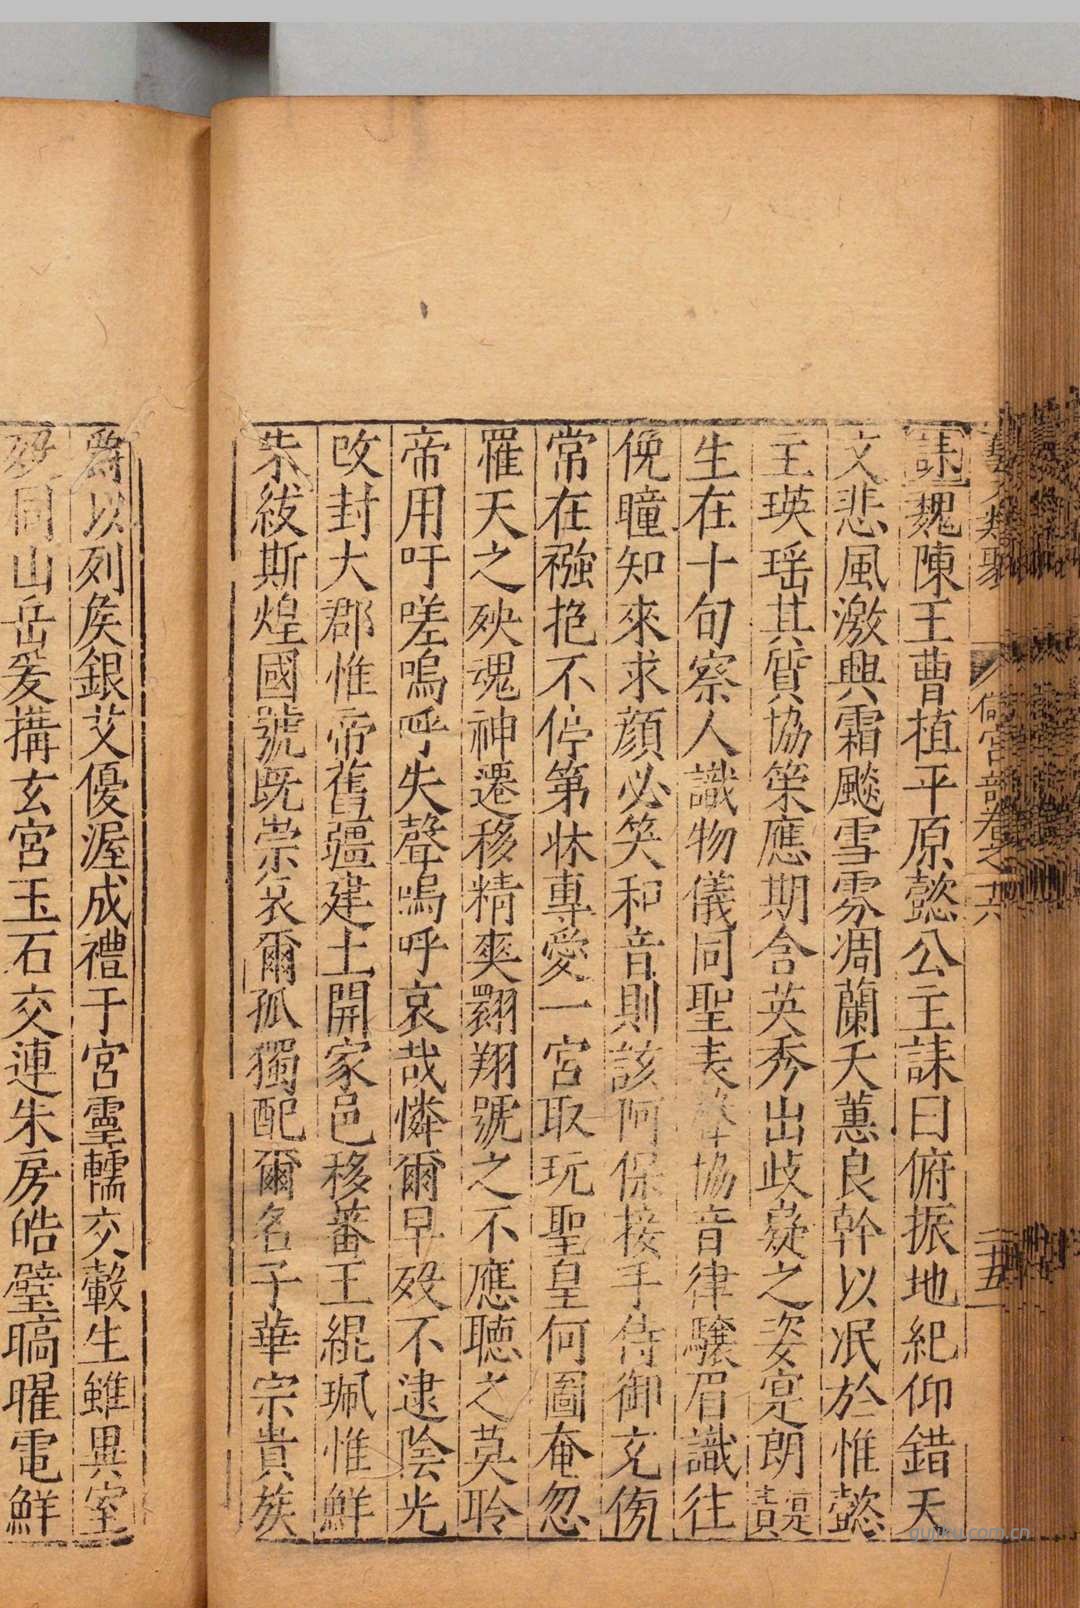 藝文類聚 儲宮部卷之十六 二十五
誄魏陳王曹植平原懿公主誄曰俯振地紀仰錯天
文悲風激興霜飈雪雰凋蘭夭蕙良幹以泯於惟懿
主瑛瑶其質協策應期含英秀出歧嶷之姿寔朗寔貴
生在十旬察人識物儀同聖表聲協音律驤眉識往
俛瞳知來求顔必笑和音則該阿保接手侍御充傍
常在襁抱不停第牀專愛一宮取玩聖皇何圖奄忽
罹天之殃魂神遷移精爽翱翔號之不應聽之莫聆
帝用吁嗟嗚呼失聲嗚呼哀哉憐爾早歿不逮陰光
改封大郡惟帝舊疆建土開家邑移蕃王緄珮惟鮮
朱紱斯煌國號既崇哀爾孤獨配爾名子華宗貴族
爵以列矦銀艾優渥成禮于宮靈轜交轂生雖異室
歿同山岳爰搆玄宮玉石交連朱房皓壁暠曜電鮮
gujiku.com.cn